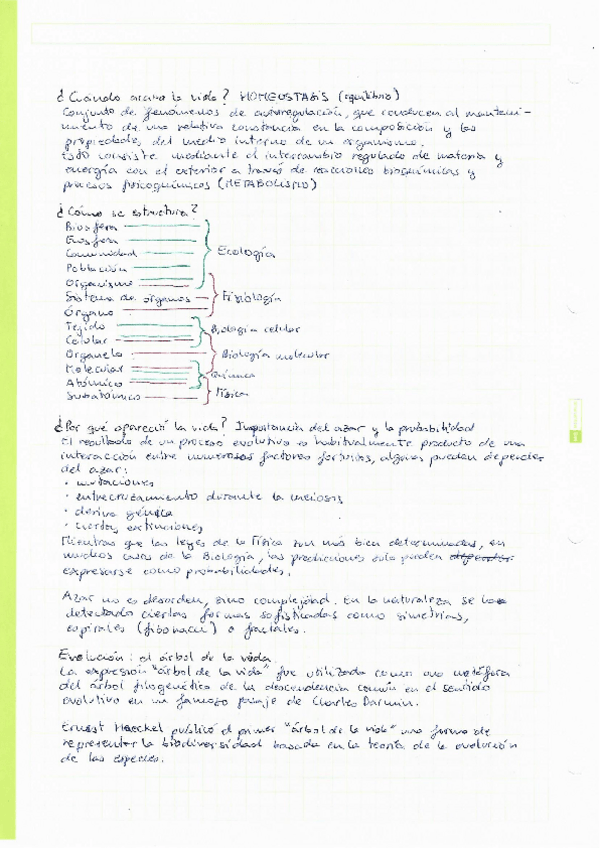 ¿Cuándo acaba la vida? HOMEOSTASIS (equilibrio)
Conjunto de fenómenos de autorregulación, que conducen al manteni-
miento de una relativa constancia en la composición y las
propiedades del medio interno de un organismo.
Esto consiste mediante el intercambio regulado de materia y
energía con el exterior a través de reacciones bioquímicas y
procesos fisicoquímicos (METABOLISMO)
¿Cómo se estructura?
Biosfera
Ecosfera
Comunidad
Población
Organismo
Sistema de órganos
Órgano
Tejido
Celular
Organelo
Molecular
Atómico
Subatómico
Ecología
Fisiología
Biología celular
Biología molecular
Química
Física
¿Por qué apareció la vida? Importancia del azar y la probabilidad
El resultado de un proceso evolutivo es habitualmente producto de una
interacción entre numerosos factores fortuitos, algunos pueden depender
del azar:
• mutaciones
• entrecruzamiento durante la meiosis
• deriva génica
• ciertas extinciones
Mientras que las leyes de la Física son más bien determinadas, en
muchos casos de la Biología, las predicciones solo pueden
expresarse como probabilidades.
Azar no es desorden, sino complejidad. En la naturaleza se han
detectado ciertas formas sofisticadas como simetrías,
espirales (fibonacci) o fractales.
Evolución: el árbol de la vida
La expresión "árbol de la vida" fue utilizada como una metáfora
del árbol filogenético de la descendencia común en el sentido
evolutivo en un famoso pasaje de Charles Darwin.
Ernest Haeckel publicó el primer "árbol de la vida" una forma de
representar la biodiversidad basada en la teoría de la evolución
de las especies.